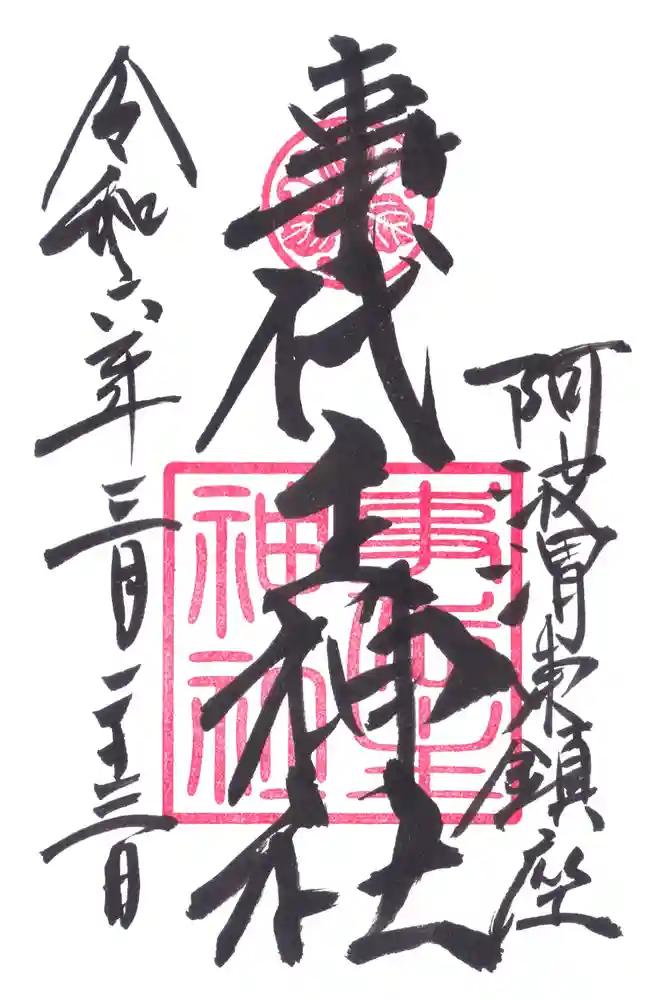 阿波渭東鎮座
事代主神社
令和六年三月二十三日
事代主
神社